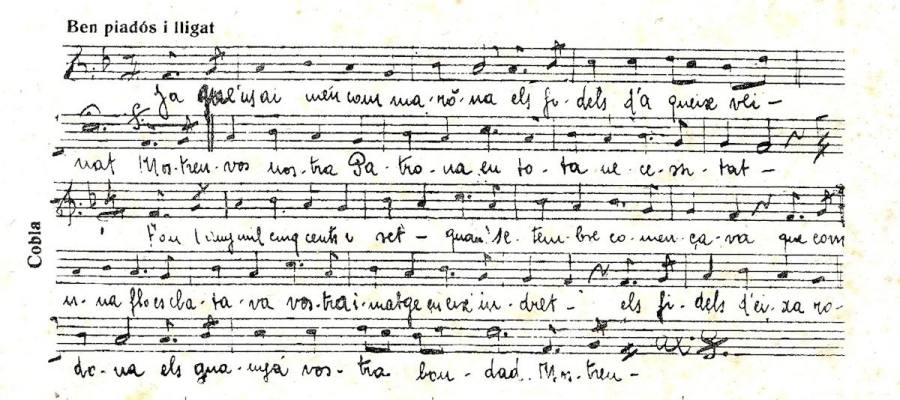 Ben piadós i lligat
Ja que'us ai men com ma-rò-na els fi-dels d'a queixe vei-
nat Mos-treu-vos nos-tra Pa-tro-na en to-ta ne-ce-ssi-tat-
Fou l'any mil cinq cents i set- quan'se-tem-bre co-men-ça-va que com
u-na flo es cla-ta-va vos-tra i-matge en eix in-dret-' els fi-dels d'ei-xa ro-
Cobla
do-na els gua-nyà vos-tra bon-dad. Mos-treu-
al